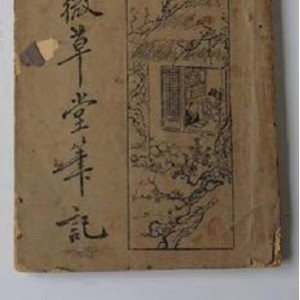 微草堂筆記